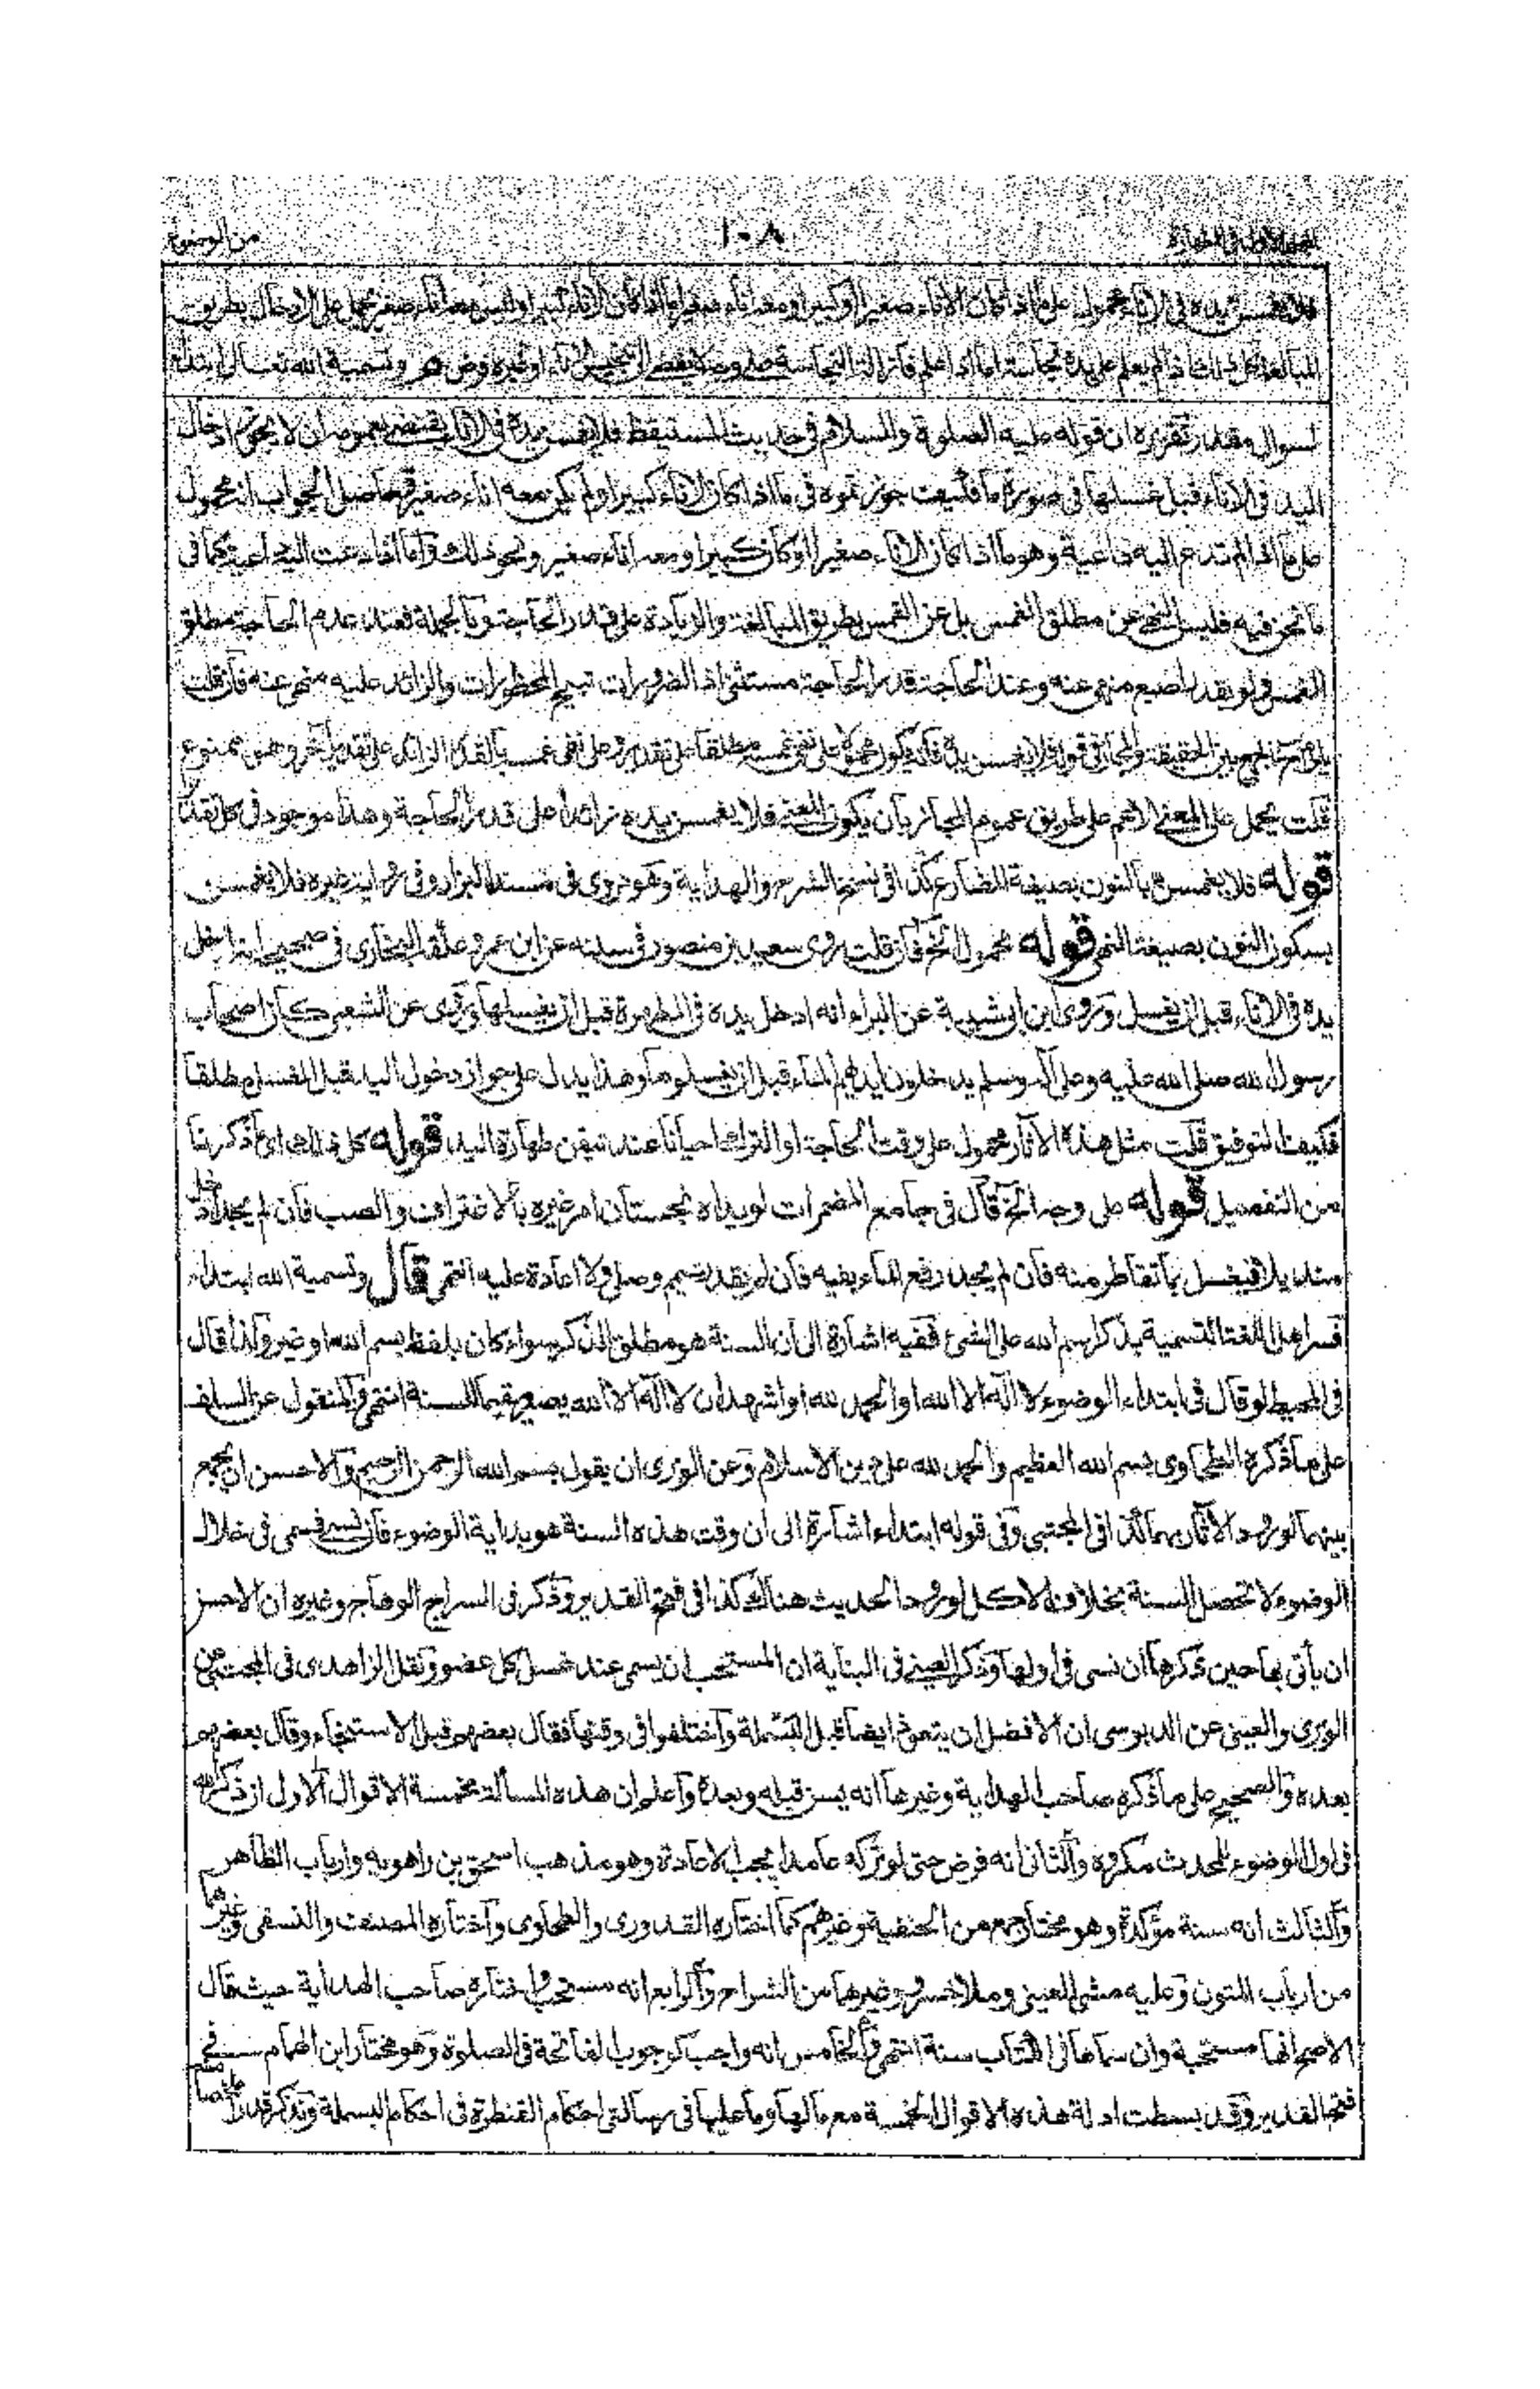 من الوضوء ١٠٨
فلا يغمسن يده في الاناء محمول على ما اذا كان الاناء صغيرا او كبيرا ومعه اناء صغير اما اذا كان الاناء كبيرا وليس معه اناء صغير يحمل على الادخال بطريق
المبالغة كل ذلك اذا لم يعلم على يده نجاسة اما اذا علم فازالة النجاسة على وجه لا يفضي الى تنجيس الاناء او غيره فرض هو وتسمية الله تعالى ابتداء
لسوال مقدر تقريره ان قوله عليه الصلوة والسلام في حديث المستيقظ فلا يغمسن يده في الاناء يقتضي بعمومه ان لا يجوز ادخال
اليد في الاناء قبل غسلها في صورة ما فكيف جوزتموه في ما اذا كان الاناء كبيرا ولم يكن معه اناء صغير وحاصل الجواب انه محمول
على ما اذا لم تدع اليه داعية وهو ما اذا كان الاناء صغيرا او كان كبيرا ومعه اناء صغير ونحو ذلك واما اذا دعت اليه داعية كما في
ما نحن فيه فليس النهي عن مطلق الغمس بل عن الغمس بطريق المبالغة والزيادة على قدر الحاجة وبالجملة فعند عدم الحاجة مطلق
الغمس ولو بقدر اصبع منهي عنه وعند الحاجة قدر الحاجة مستثنى اذ الضرورات تبيح المحظورات والزائد عليه منهي عنه فان قلت
يلزم الجمع بين الحقيقة والمجاز في قوله فلا يغمسن يده فانه يكون محمولا على نفي غمسه مطلقا على تقدير وعلى نفي غمسه بالقدر الزائد على تقدير آخر وهو ممنوع
قلت يحمل على المعنى الاعم على طريق عموم المجاز بان يكون المعنى فلا يغمسن يده زائدا على قدر الحاجة وهذا موجود في كل تقدير
قوله فلا يغمسن بالنون بصيغة المضارع كذا في نسخ الشرح والهداية وهو مروي في مسند البزار وفي رواية غيره فلا يغمس
بسكون النون بصيغة النهي قوله محمول الخ فان قلت روى سعيد بن منصور في سننه عن ابن عمر وعلقه البخاري في صحيحه انه ادخل
يده في الاناء قبل ان يغسل وروى ابن ابي شيبة عن البراء انه ادخل يده في المطهرة قبل ان يغسلها وروى عن الشعبي كان اصحاب
رسول الله صلى الله عليه وعلى آله وسلم يدخلون ايديهم الماء قبل ان يغسلوها وهذا يدل على جواز دخول اليد قبل الغسل مطلقا
فكيف التوفيق قلت مثل هذه الآثار محمول على وقت الحاجة او الترك احيانا عند تيقن طهارة اليد قوله كل ذلك اي ما ذكرنا
من التفصيل قوله على وجه الخ قال في جامع المضمرات لو يداه نجستان امر غيره بالاغتراف والصب فان لم يجد ادخل
منديلا فيغسل بما تقاطر منه فان لم يجد رفع الماء بفيه فان لم يقدر تيمم وصلى ولا اعادة عليه انتهى قال وتسمية الله ابتداء
فسر اهل اللغة التسمية بذكر اسم الله على الشيء ففيه اشارة الى ان السنة هو مطلق الذكر سواء كان بلفظ بسم الله او غيره ولذا قال
في المحيط لو قال في ابتداء الوضوء لا اله الا الله او الحمد لله او اشهد ان لا اله الا الله يصير مقيما للسنة انتهى والمنقول عن السلف
على ما ذكره الطحاوي بسم الله العظيم والحمد لله على دين الاسلام وعن الوبري ان يقول بسم الله الرحمن الرحيم والاحسن ان يجمع
بينهما لورود الآثار بهما كذا في المجتبى وفي قوله ابتداء اشارة الى ان وقت هذه السنة هو بداية الوضوء فان نسي فسمى في خلال
الوضوء لا تحصل السنة بخلاف الاكل لورود الحديث هناك كذا في فتح القدير وذكر في السراج الوهاج وغيره ان الاحسن
ان يأتي بها حين ذكرها ان نسي في اولها وذكر العيني في البناية ان المستحب ان يسمى عند غسل كل عضو ونقل الزاهدي في المجتبى عن
الوبري والعيني عن الدبوسي ان الافضل ان يتعوذ ايضا قبل البسملة واختلفوا في وقتها فقال بعضهم قبل الاستنجاء وقال بعضهم
بعده والصحيح على ما ذكره صاحب الهداية وغيرها انه يسن قبله وبعده واعلم ان هذه المسألة مخمسة الاقوال الاول ان ذكر الله
في اول الوضوء للمحدث مكروه والثاني انه فرض حتى لو تركه عامدا يجب الاعادة وهو مذهب اسحق بن راهويه وارباب الظاهر
والثالث انه سنة مؤكدة وهو مختار جمع من الحنفية وغيرهم كما اختاره القدوري والطحاوي واختاره المصنف والنسفي وغيرهما
من ارباب المتون وعليه مشى العيني وملا خسرو وغيرهما من الشراح والرابع انه مستحب واختاره صاحب الهداية حيث قال
الاصح انها مستحبة وان سماها في الكتاب سنة انتهى والخامس انه واجب كوجوب الفاتحة في الصلوة وهو مختار ابن الهمام في
فتح القدير وقد بسطت ادلة هذه الاقوال الخمسة مع ما لها وما عليها في رسالتي احكام القنطرة في احكام البسملة ونذكر قدرا